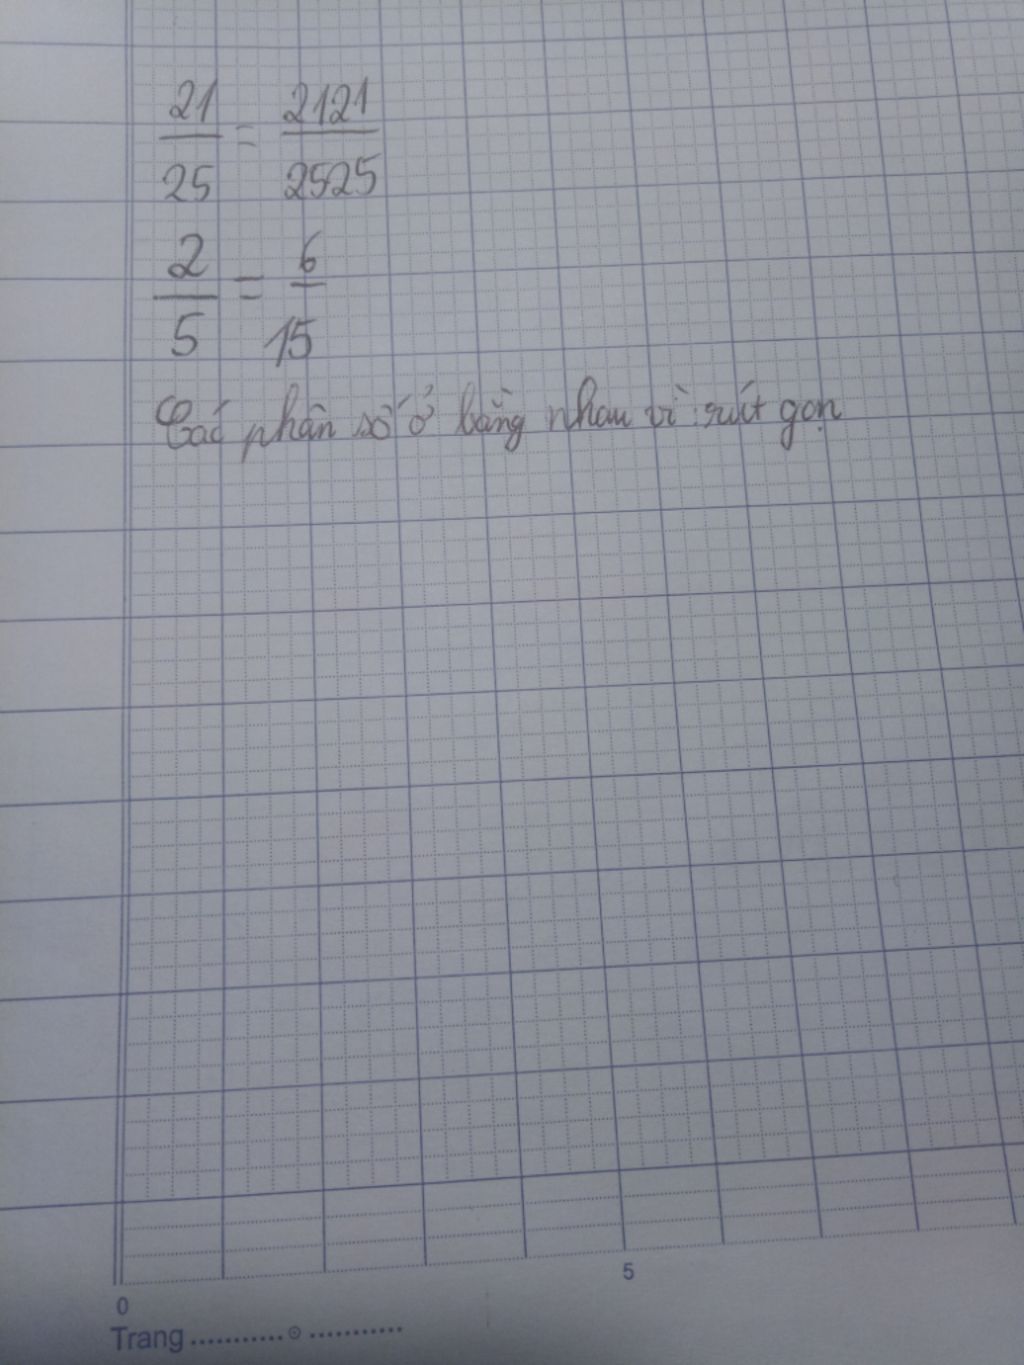 21/25 = 2121/2525
2/5 = 6/15
Các phân số ở bằng nhau vì rút gọn
5
0
Trang ........... ⊙ ...........